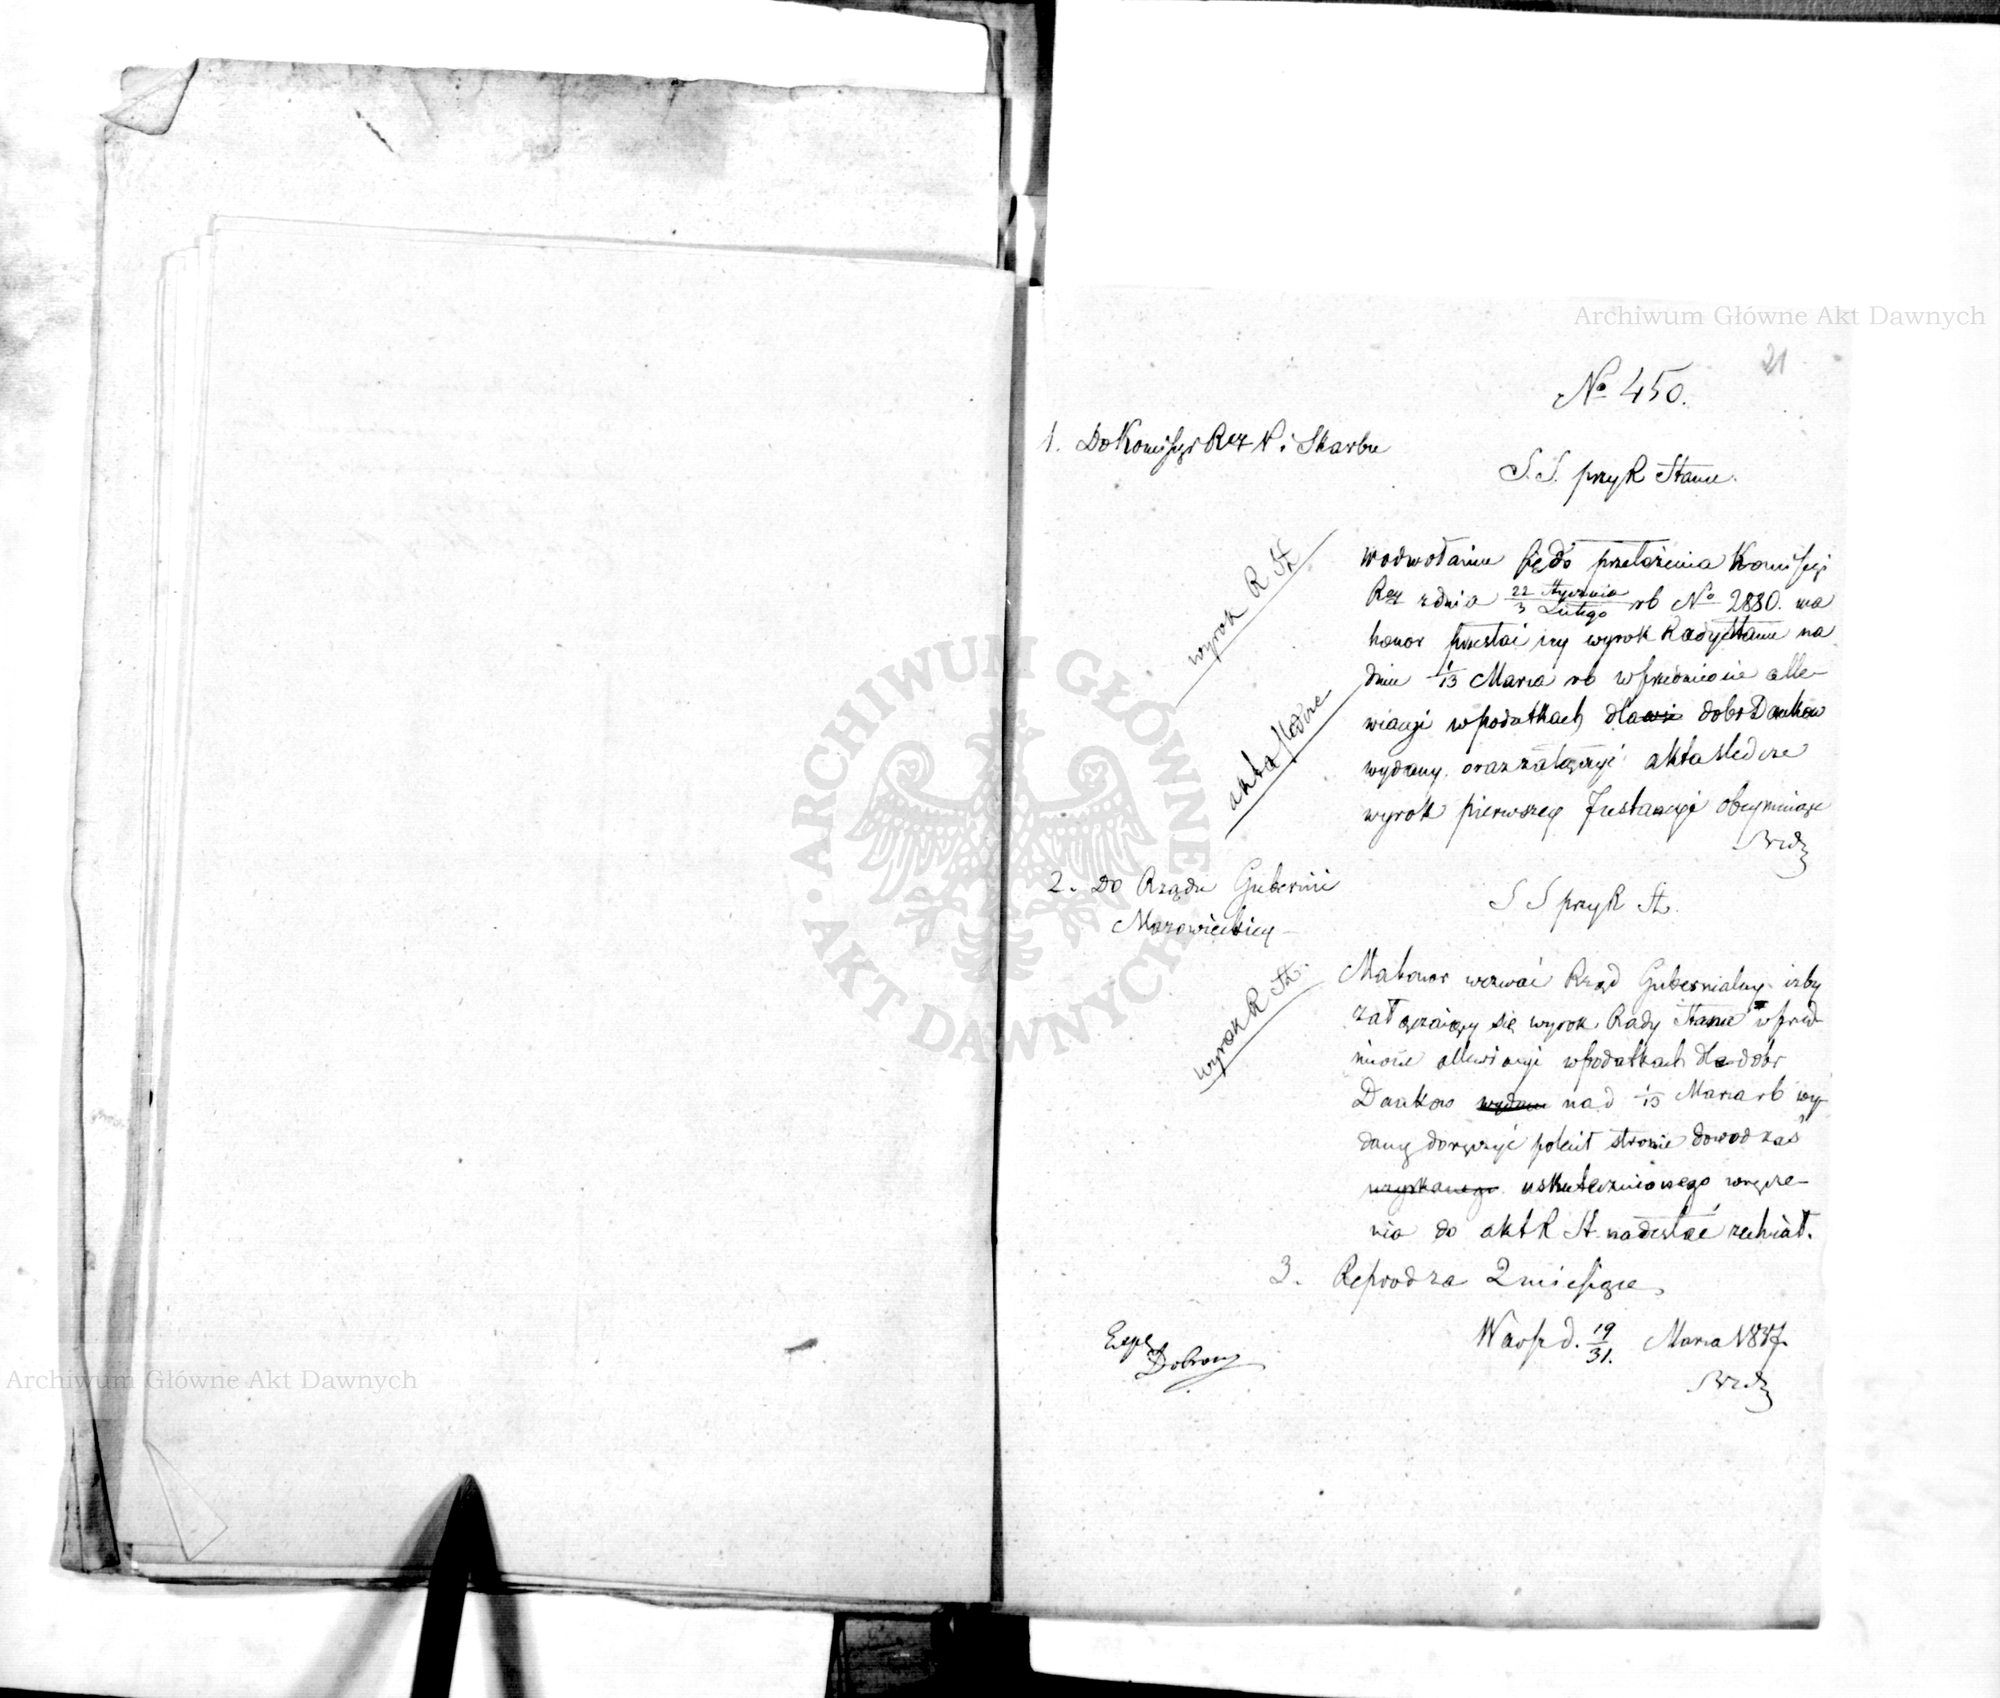 Archiwum Główne Akt Dawnych
21
No 450.
1. Do Komissyi Rz P. i Skarbu
S. S. przy R Stanu.
wyrok R St
W odwołaniu się do przełożenia Komissyi
Rz z dnia 22 Stycznia / 3 Lutego rb No 2880. ma
honor przesłać jey wyrok Rady Stanu na
dniu 1/13 Marca rb w przedmiocie alle-
akta śledcze
wiacyi w podatkach dla dobr Dankow
wydany. oraz załączyć akta śledcze
wyrok pierwszey Instancyi obeymujące
2. Do Rządu Gubernii
Mazowieckiey
S S przy R St.
wyrok R St.
Ma honor wezwać Rząd Gubernialny iżby
załączaiący się wyrok Rady Stanu w przed-
miocie allewiacyi w podatkach dla dobr
Dankow wydany na d 1/13 Marca rb wy-
dany doręczyć polecił stronie dowod zaś
uzyskanego uskutecznionego wręcze-
nia do akt R St. nadesłać zechciał.
3. Reprod za 2 miesiące.
Warsz d. 19/31. Marca 1837
Exp
ARCHIWUM GŁÓWNE · AKT DAWNYCH ·
Archiwum Główne Akt Dawnych